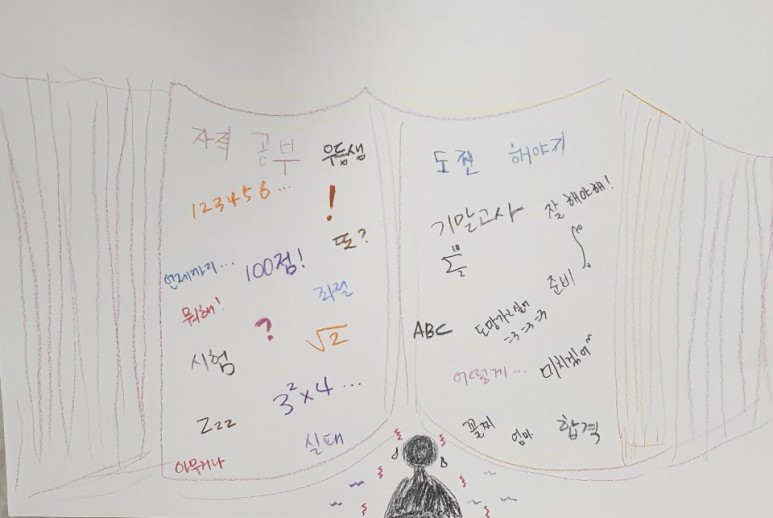 자격 공부 우등생
123456...
!
언제까지... 100점! 또?
뭐해! 좌절
?
시험 √2
3²x4...
Zzz
실태
아무거나
도전 해야지
기말고사 잘해야해!
준비
ABC 도망가고싶어
어떻게... 미치겠어~
꼴찌 엄마 합격